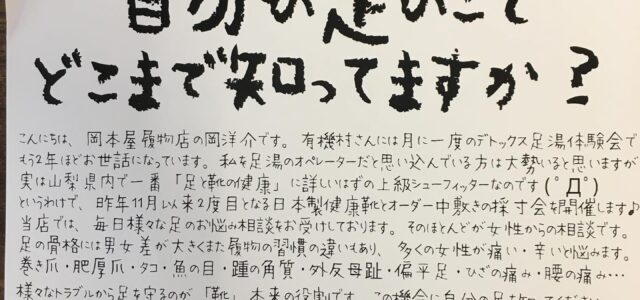 自分の足のこと
どこまで知ってますか?
こんにちは、岡本屋履物店の岡洋介です。有機村さんには月に一度のデトックス足湯体験会で
もう2年ほどお世話になっています。私を足湯のオペレーターだと思い込んでいる方は大勢いると思いますが
実は山梨県内で一番「足と靴の健康」に詳しいはずの上級シューフィッターなのです(ﾟДﾟ)
というわけで、昨年11月以来2度目となる日本製健康靴とオーダー中敷きの採寸会を開催します♪
当店では、毎日様々な足のお悩み相談をお受けしております。そのほとんどが女性からの相談です。
足の骨格には男女差が大きくまた履物の習慣の違いもあり、多くの女性が痛い・辛いと悩みます。
巻き爪・肥厚爪・タコ・魚の目・踵の角質・外反母趾・偏平足・ひざの痛み・腰の痛み…
様々なトラブルから足を守るのが「靴」本来の役割です。この機会に自分の足を知ってください